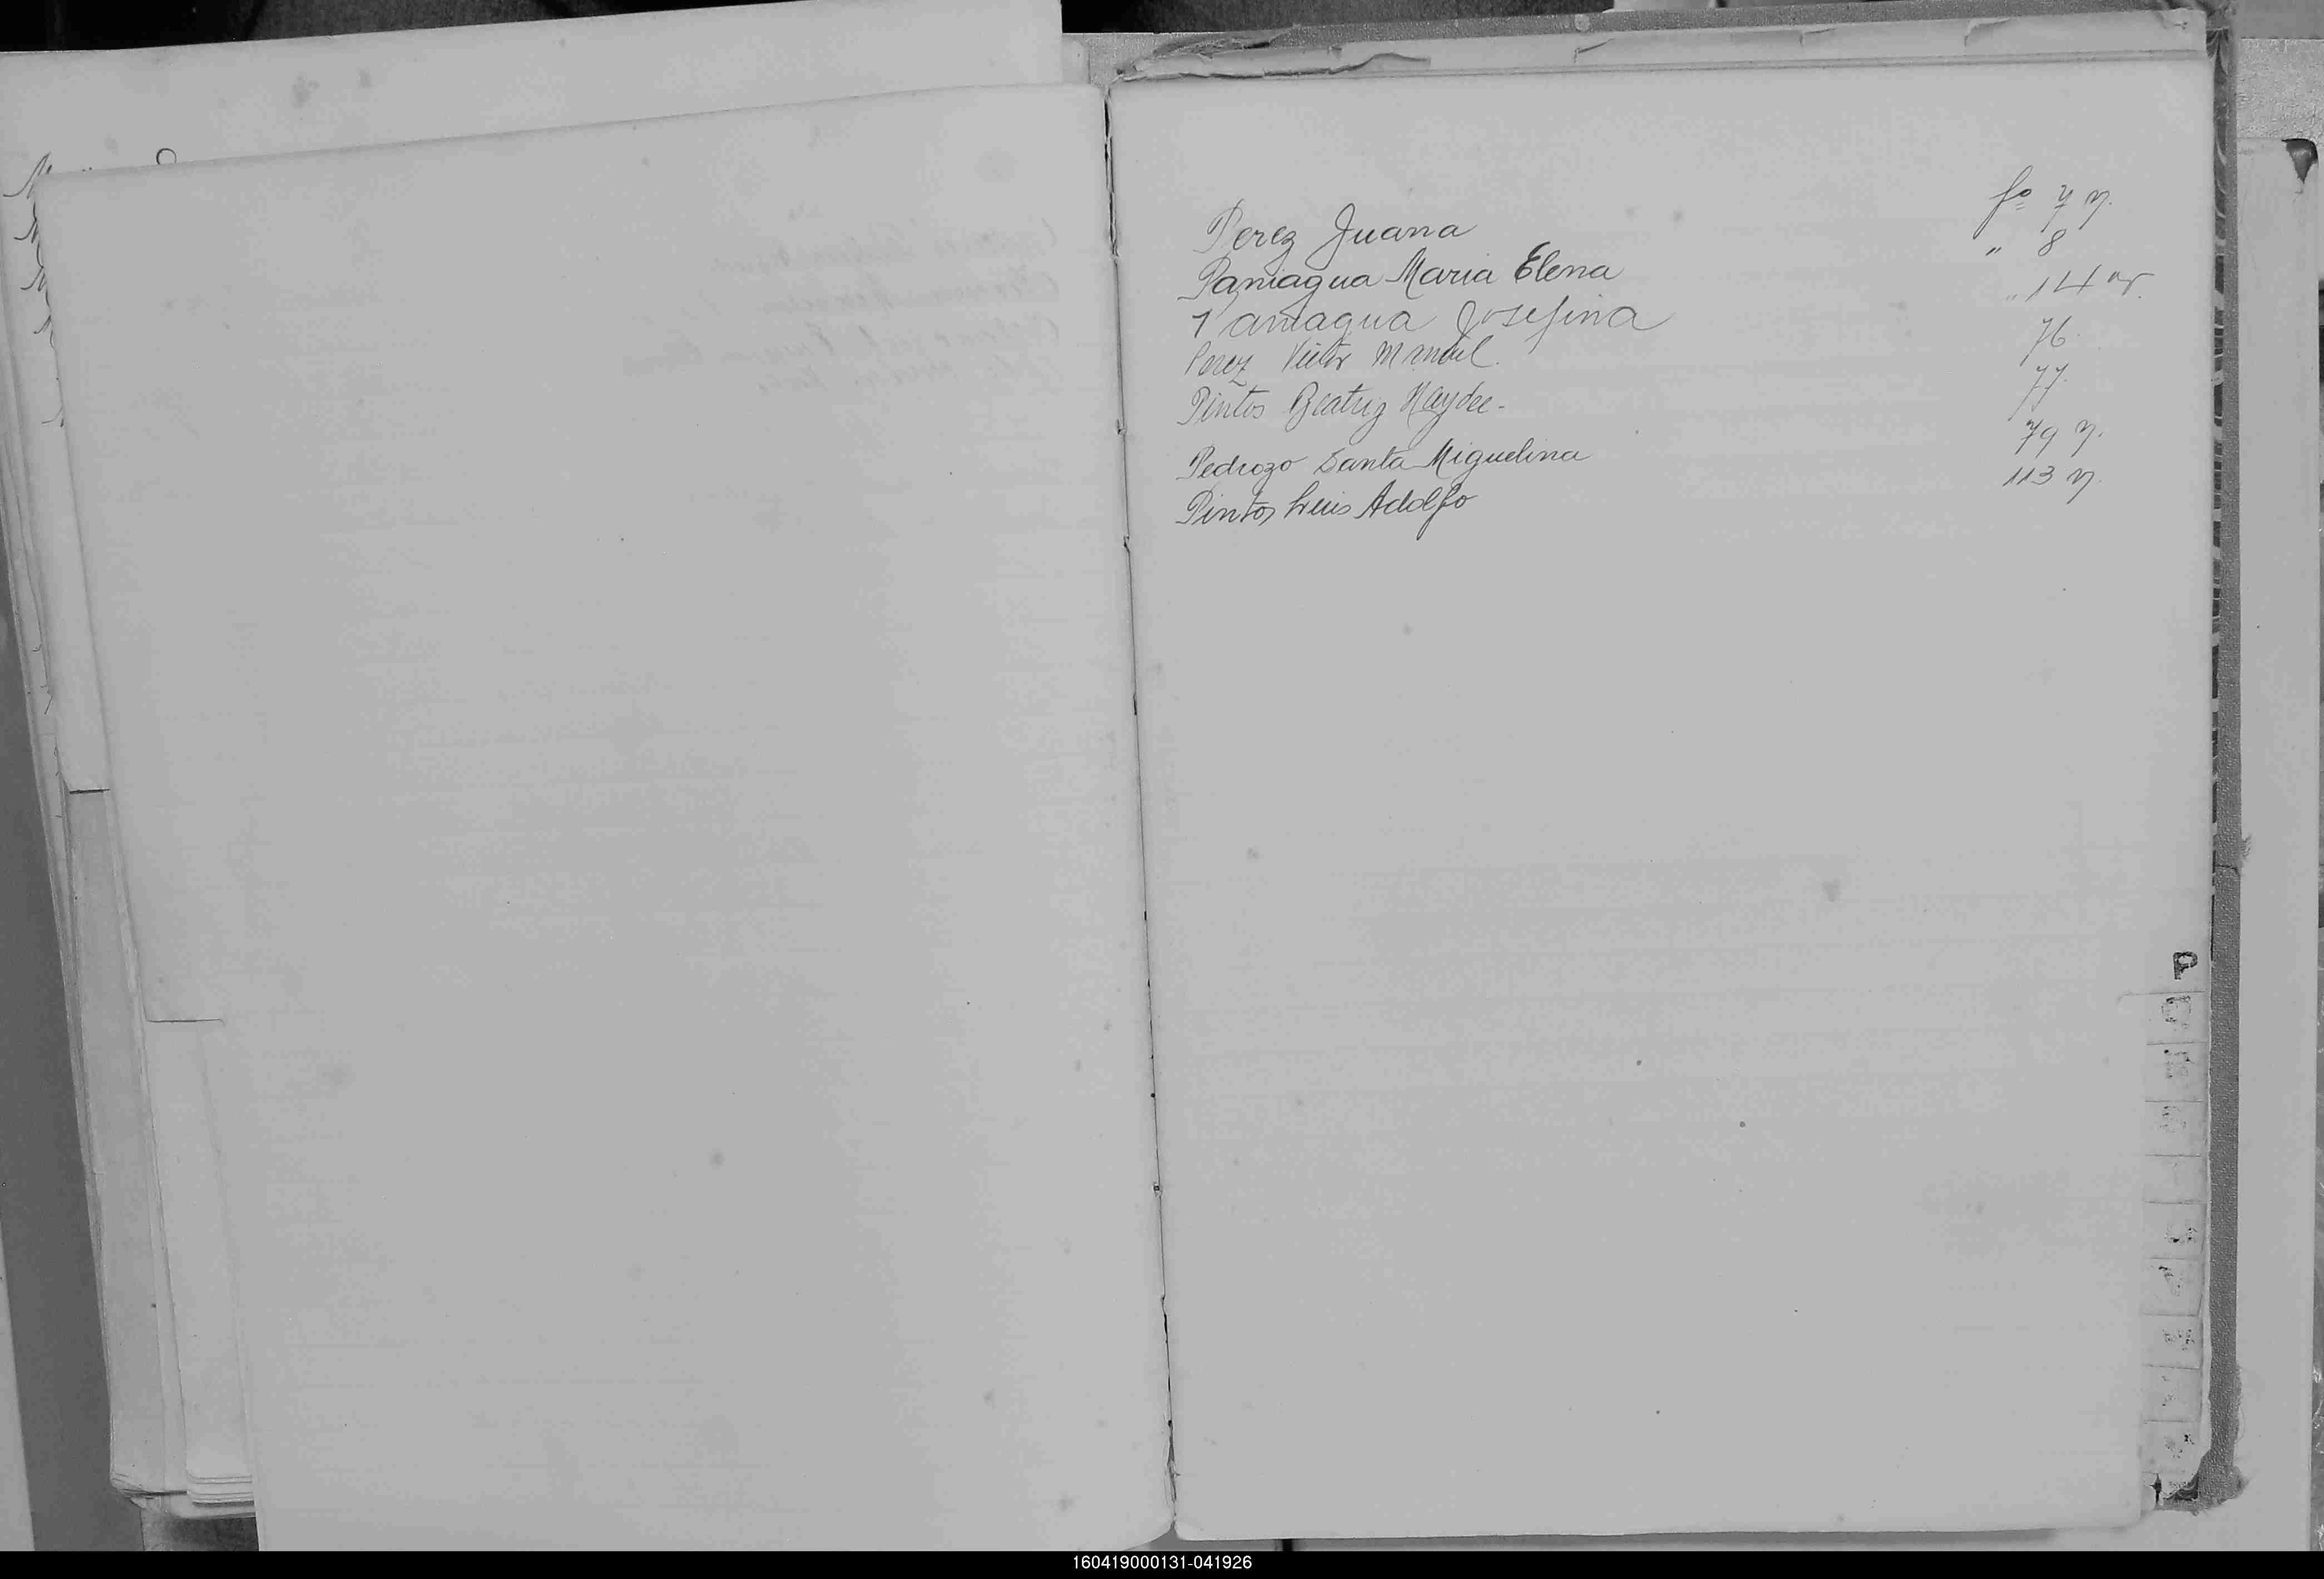 Perez Juana fº 7 v.
Paniagua Maria Elena " 8
Paniagua Josefina " 14 v.
Perez Victor Manuel. 76.
Pintos Beatriz Haydee- 77.
Pedrozo Santa Miguelina 79 v.
Pintos Luis Adolfo 113 v.
P
160419000131-041926